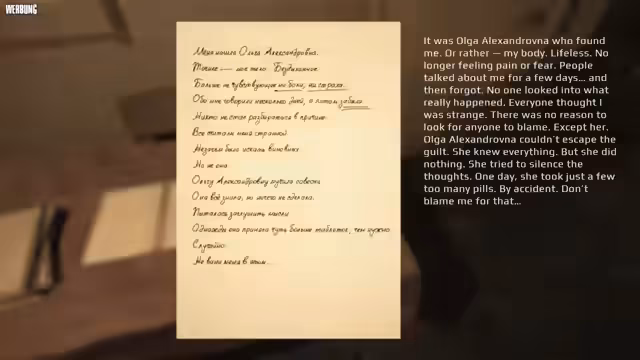 WERBUNG
Меня нашла Ольга Александровна.
Точнее — моё тело. Бездыханное.
Больше не чувствующее ни боли, ни страха.
Обо мне говорили несколько дней, а потом забыли.
Никто не стал разбираться в причине.
Все считали меня странной
Незачем было искать виновных
Но не она
Ольгу Александровну мучила совесть
Она всё знала, но ничего не сделала.
Пыталась заглушить мысли
Однажды она приняла чуть больше таблеток, чем нужно
Случайно.
Не вини меня в этом...
It was Olga Alexandrovna who found
me. Or rather — my body. Lifeless. No
longer feeling pain or fear. People
talked about me for a few days... and
then forgot. No one looked into what
really happened. Everyone thought I
was strange. There was no reason to
look for anyone to blame. Except her.
Olga Alexandrovna couldn't escape the
guilt. She knew everything. But she did
nothing. She tried to silence the
thoughts. One day, she took just a few
too many pills. By accident. Don't
blame me for that...